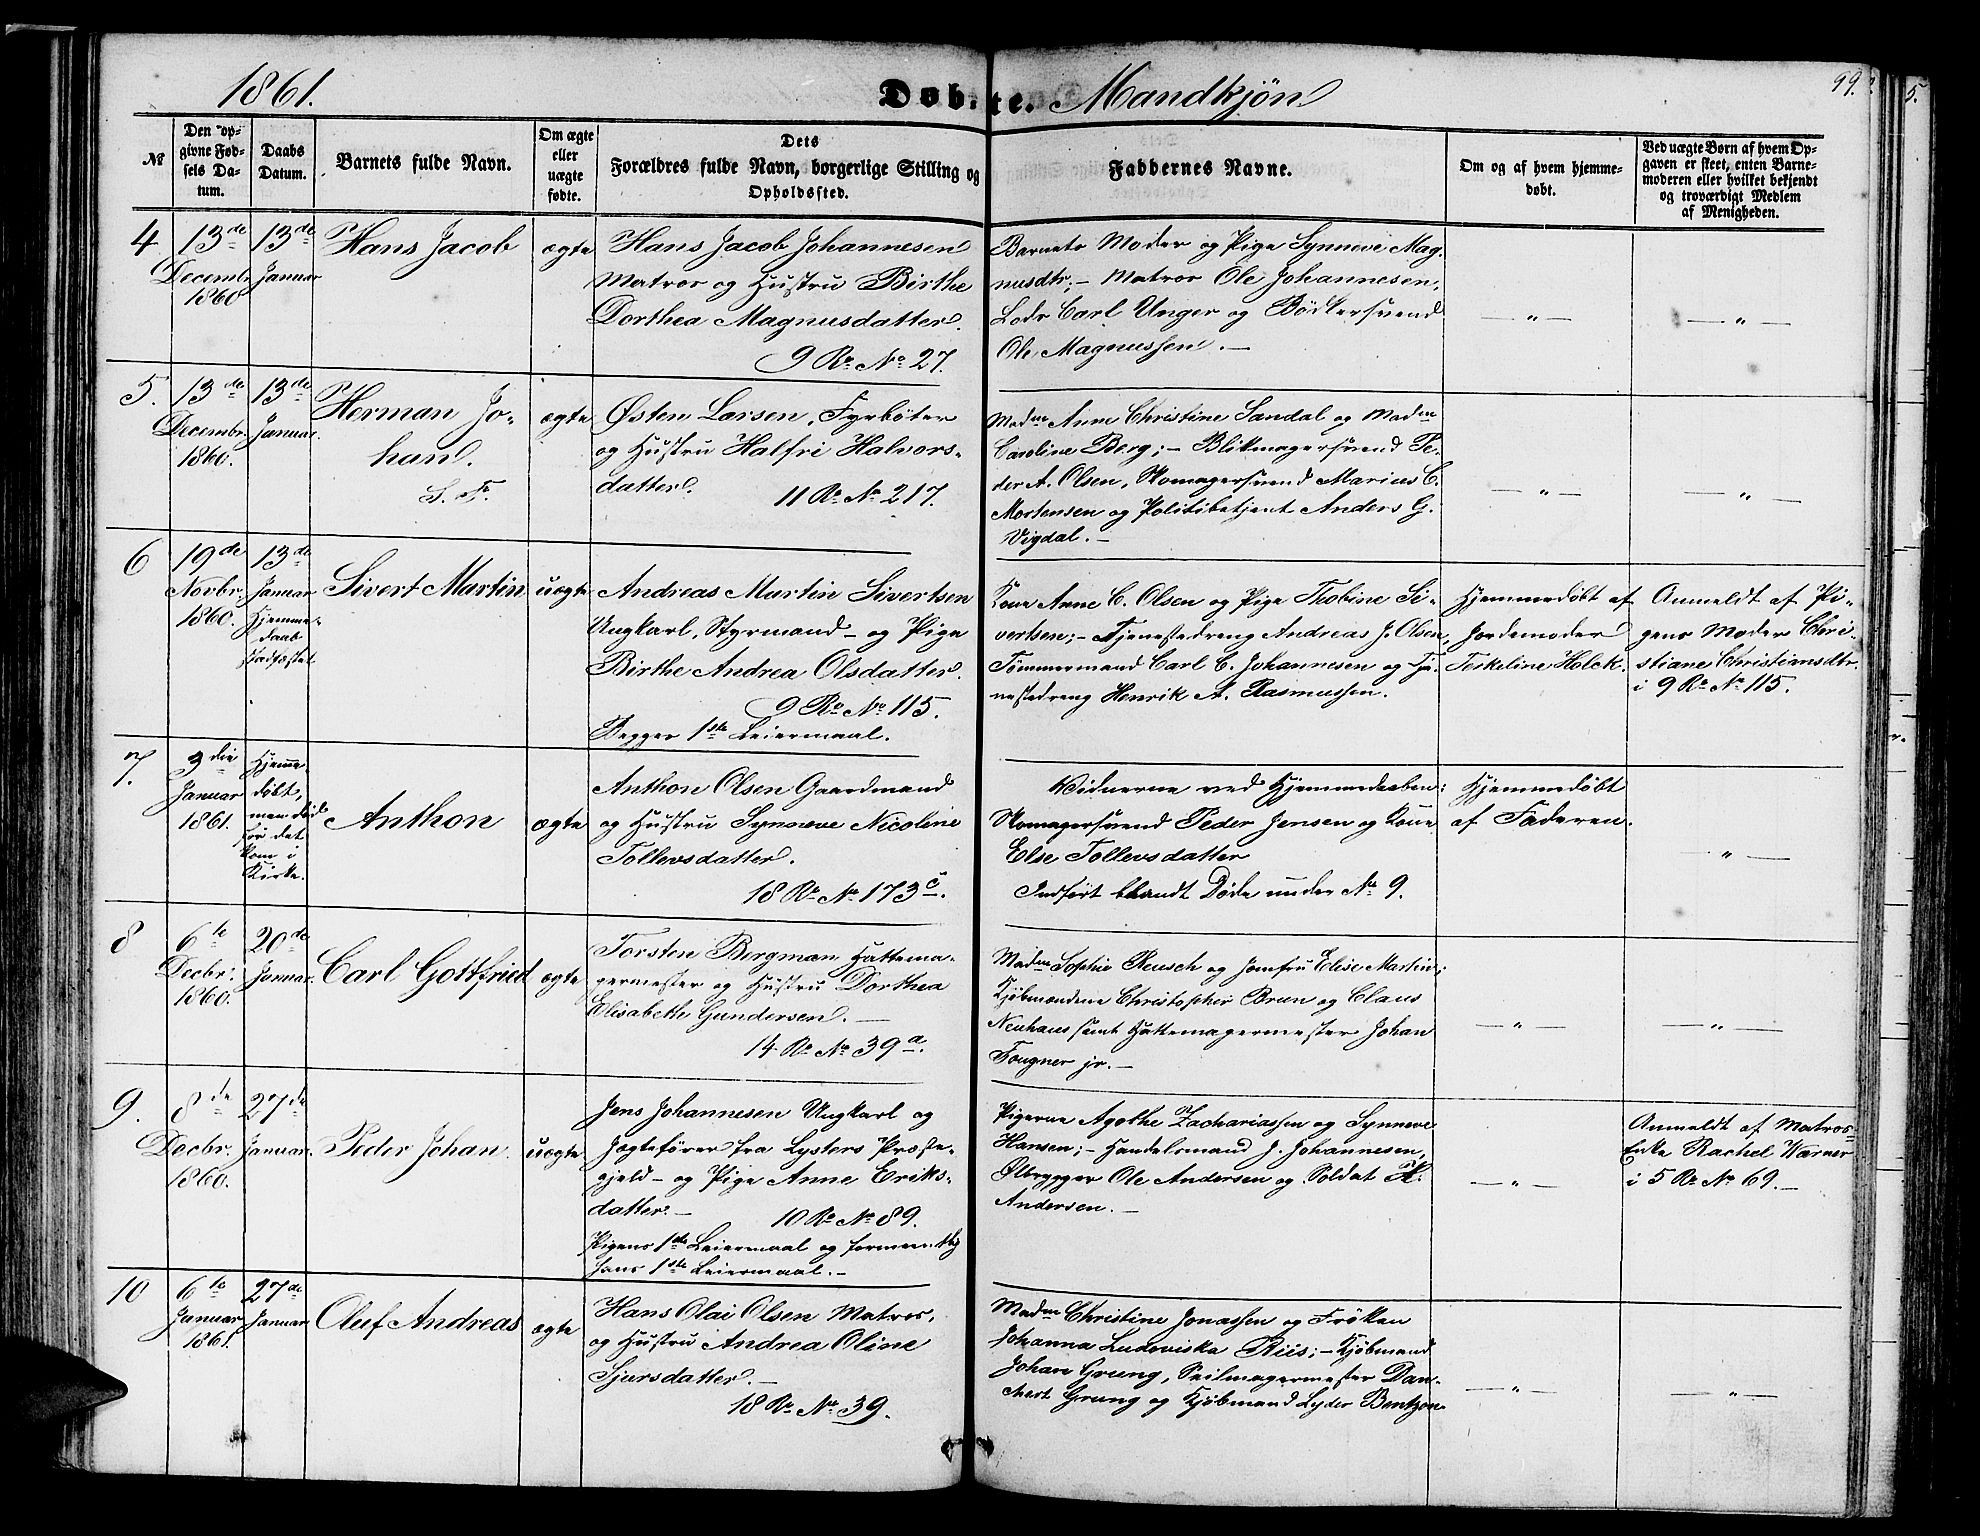 1861.
Døbte. Mandkjön
99.
№
Den opgivne Fødsels Datum.
Daabs Datum.
Barnets fulde Navn.
Om ægte eller uægte fødte.
Dets
Forældres fulde Navn, borgerlige Stilling og
Opholdssted.
Faddernes Navne.
Om og af hvem hjemmedøbt.
Ved uægte Børn af hvem Opgaven er skeet, enten Barnemoderen eller hvilket bekjendt og troværdigt Medlem af Menigheden.
4
13de
Decembr.
1860
13de
Januar
Hans Jacob
ægte
Hans Jacob Johannesen
Matros og Hustru Birthe
Dorthea Magnusdatter.
9 Ro. No. 27.
Barnets Moder og Pige Synneve Mag-
nusdtr; - Matros Ole Johannesen,
Lods Carl Unger og Bödkersvend
Ole Magnussen. -
— " —
— " —
5.
13de
Decembr.
1860.
13de
Januar.
Herman Jo-
han.
S. F.
ægte
Østen Larsen, Fyrböter
og Hustru Halfri Halvors-
datter.
11 Ro. No. 217.
Madm Anne Christine Sandal og Madm
Caroline Berg; - Blikmagersvend Pe-
der A. Olsen, Skomagersvend Marius C.
Mortensen og Politibetjent Anders G.
Vigdal. -
— " —
— " —
6
19de
Novbr.
1860.
13de
Januar
Hjemme-
daab
stadfæstet.
Sivert Martin
uægte
Andreas Martin Sivertsen
Ungkarl, Styrmand - og Pige
Birthe Andrea Olsdatter.
9 Ro. No. 115.
Begges 1ste Leiermaal.
Kone Anne C. Olsen og Pige Thobine Si-
vertsen; - Tjenestedreng Andreas J. Olsen,
Tømmermand Carl C. Johannesen og Tje-
nestedreng Henrik A. Rasmussen.
Hjemmedöbt af
Jordemoder
Terkeline Holck.
Anmeldt af Pi-
gens Moder Chri-
stiane Christensdtr.
i 9 Ro. No. 115.
7.
3die
Januar
1861.
Hjemme-
döbt,
men död
för det
kom i
Kirke.
Anthon
ægte
Anthon Olsen Gaardmand
og Hustru Synneve Nicoline
Tollevsdatter.
18 Ro. No. 173 c.
Vidnerne ved Hjemmedaaben:
Skomagersvend Peder Jensen og Kone
Else Tollevsdatter
Indfört blandt Døde under No. 9.
Hjemmedöbt
af Faderen.
— " —
8
6te
Decbr.
1860.
20de
Januar.
Carl Gottfried
ægte
Torsten Bergman Hattema-
germester og Hustru Dorthea
Elisabeth Gundersen. —
14 Ro. No. 39 a.
Madm Sophie Reusch og Jomfru Elise Martin;
Kjöbmændene Christopher Brun og Claus
Neuhaus samt Hattemagermester Johan
Fougner jr. -
— " —
— " —
9.
8de
Decbr.
1860.
27de
Januar.
Peder Johan.
uægte
Jens Johannesen Ungkarl og
Jægtefører fra Lysters Præste-
gjeld - og Pige Anne Eriks-
datter. -
10 Ro. No. 89.
Pigens 1ste Leiermaal og formeentlig
hans 1ste Leiermaal. -
Pigerne Agathe Zachariassen og Synneve
Hansen; - Handelsmand J. Johannesen,
Ølbrygger Ole Andersen og Soldat K.
Andersen. -
— " —
Anmeldt af Matros-
Enke Rachel Warner
i 5 Ro. No. 69. -
10
6te
Januar
1861.
27de
Januar
Oluf Andreas
ægte
Hans Olai Olsen Matros,
og Hustru Andrea Oline
Sjursdatter. -
18 Ro. No. 39.
Madm Christine Jonassen og Fröken
Johanna Ludoviska Riis; - Kjöbmand
Johan Grung, Seilmagermester Dan-
chert Grung og Kjöbmand Lyder Bentzon
— " —
— " —